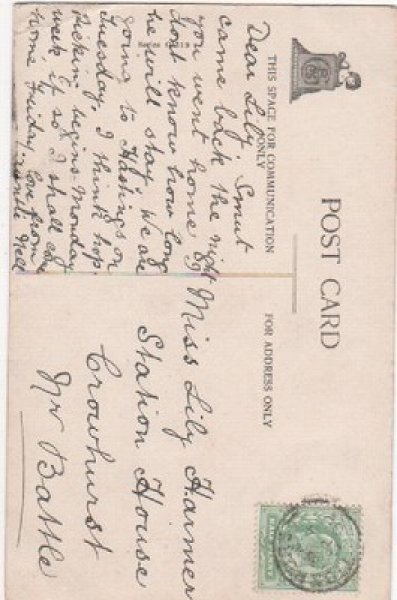 POST CARD
THIS SPACE FOR COMMUNICATION
ONLY
FOR ADDRESS ONLY
Dear Lily. Smut
came back the night
you went home,
dont know how long
he will stay, we are
going to Hastings on
Tuesday, I think hop
Picking begins Monday
week if so I shall come
home Friday, love from
Auntie Nell
Miss Lily Harmer
Station House
Crowhurst
Nr Battle